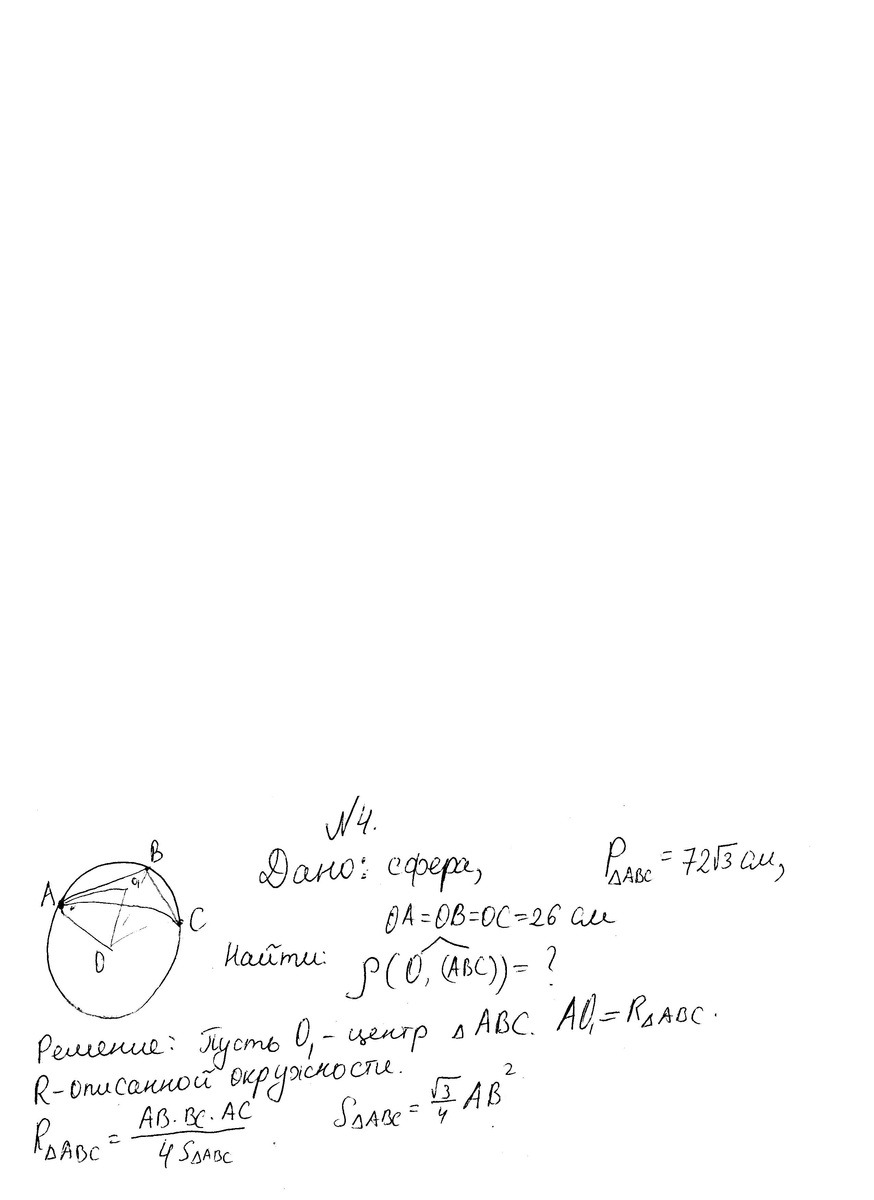 N4.
Дано: сфера, P△ABC = 72√3 см,
OA=OB=OC=26 см
Найти: ρ(O, (ABC)) = ?
A B C O O₁
Решение: Пусть O₁ - центр △ABC. AO₁ = R△ABC.
R-описанной окружности.
R△ABC = AB·BC·AC / 4S△ABC . S△ABC = √3/4 AB²